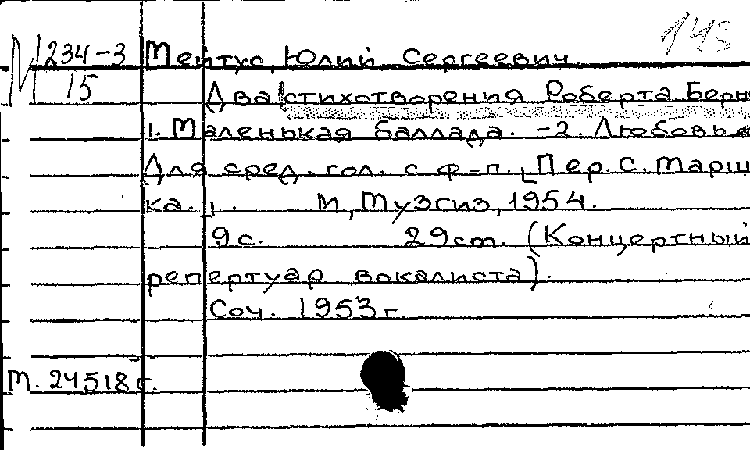 М 234-3 Мейтус, Юлий Сергеевич. 143
15 Два стихотворения Роберта Берн
1. Маленькая баллада. -2. Любовь
Для сред. гол. с ф-п. Пер. С. Марш
ка. М, Музгиз, 1954.
9с. 29ст. (Концертный
репертуар вокалиста).
Соч. 1953г
М. 24518г.